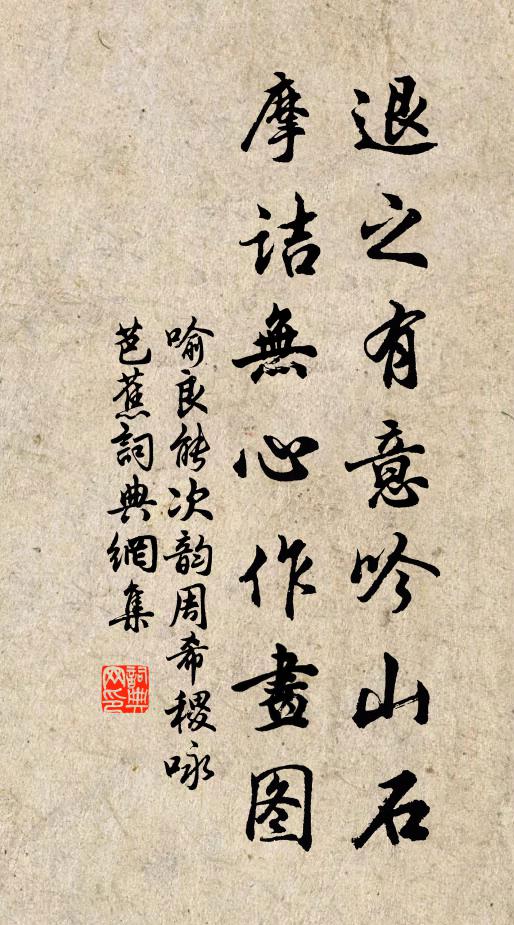 退之有意吟山石
摩诘無心作畫图
喻良能次韵周希稷咏
芭蕉詞典網集
詞典
网印